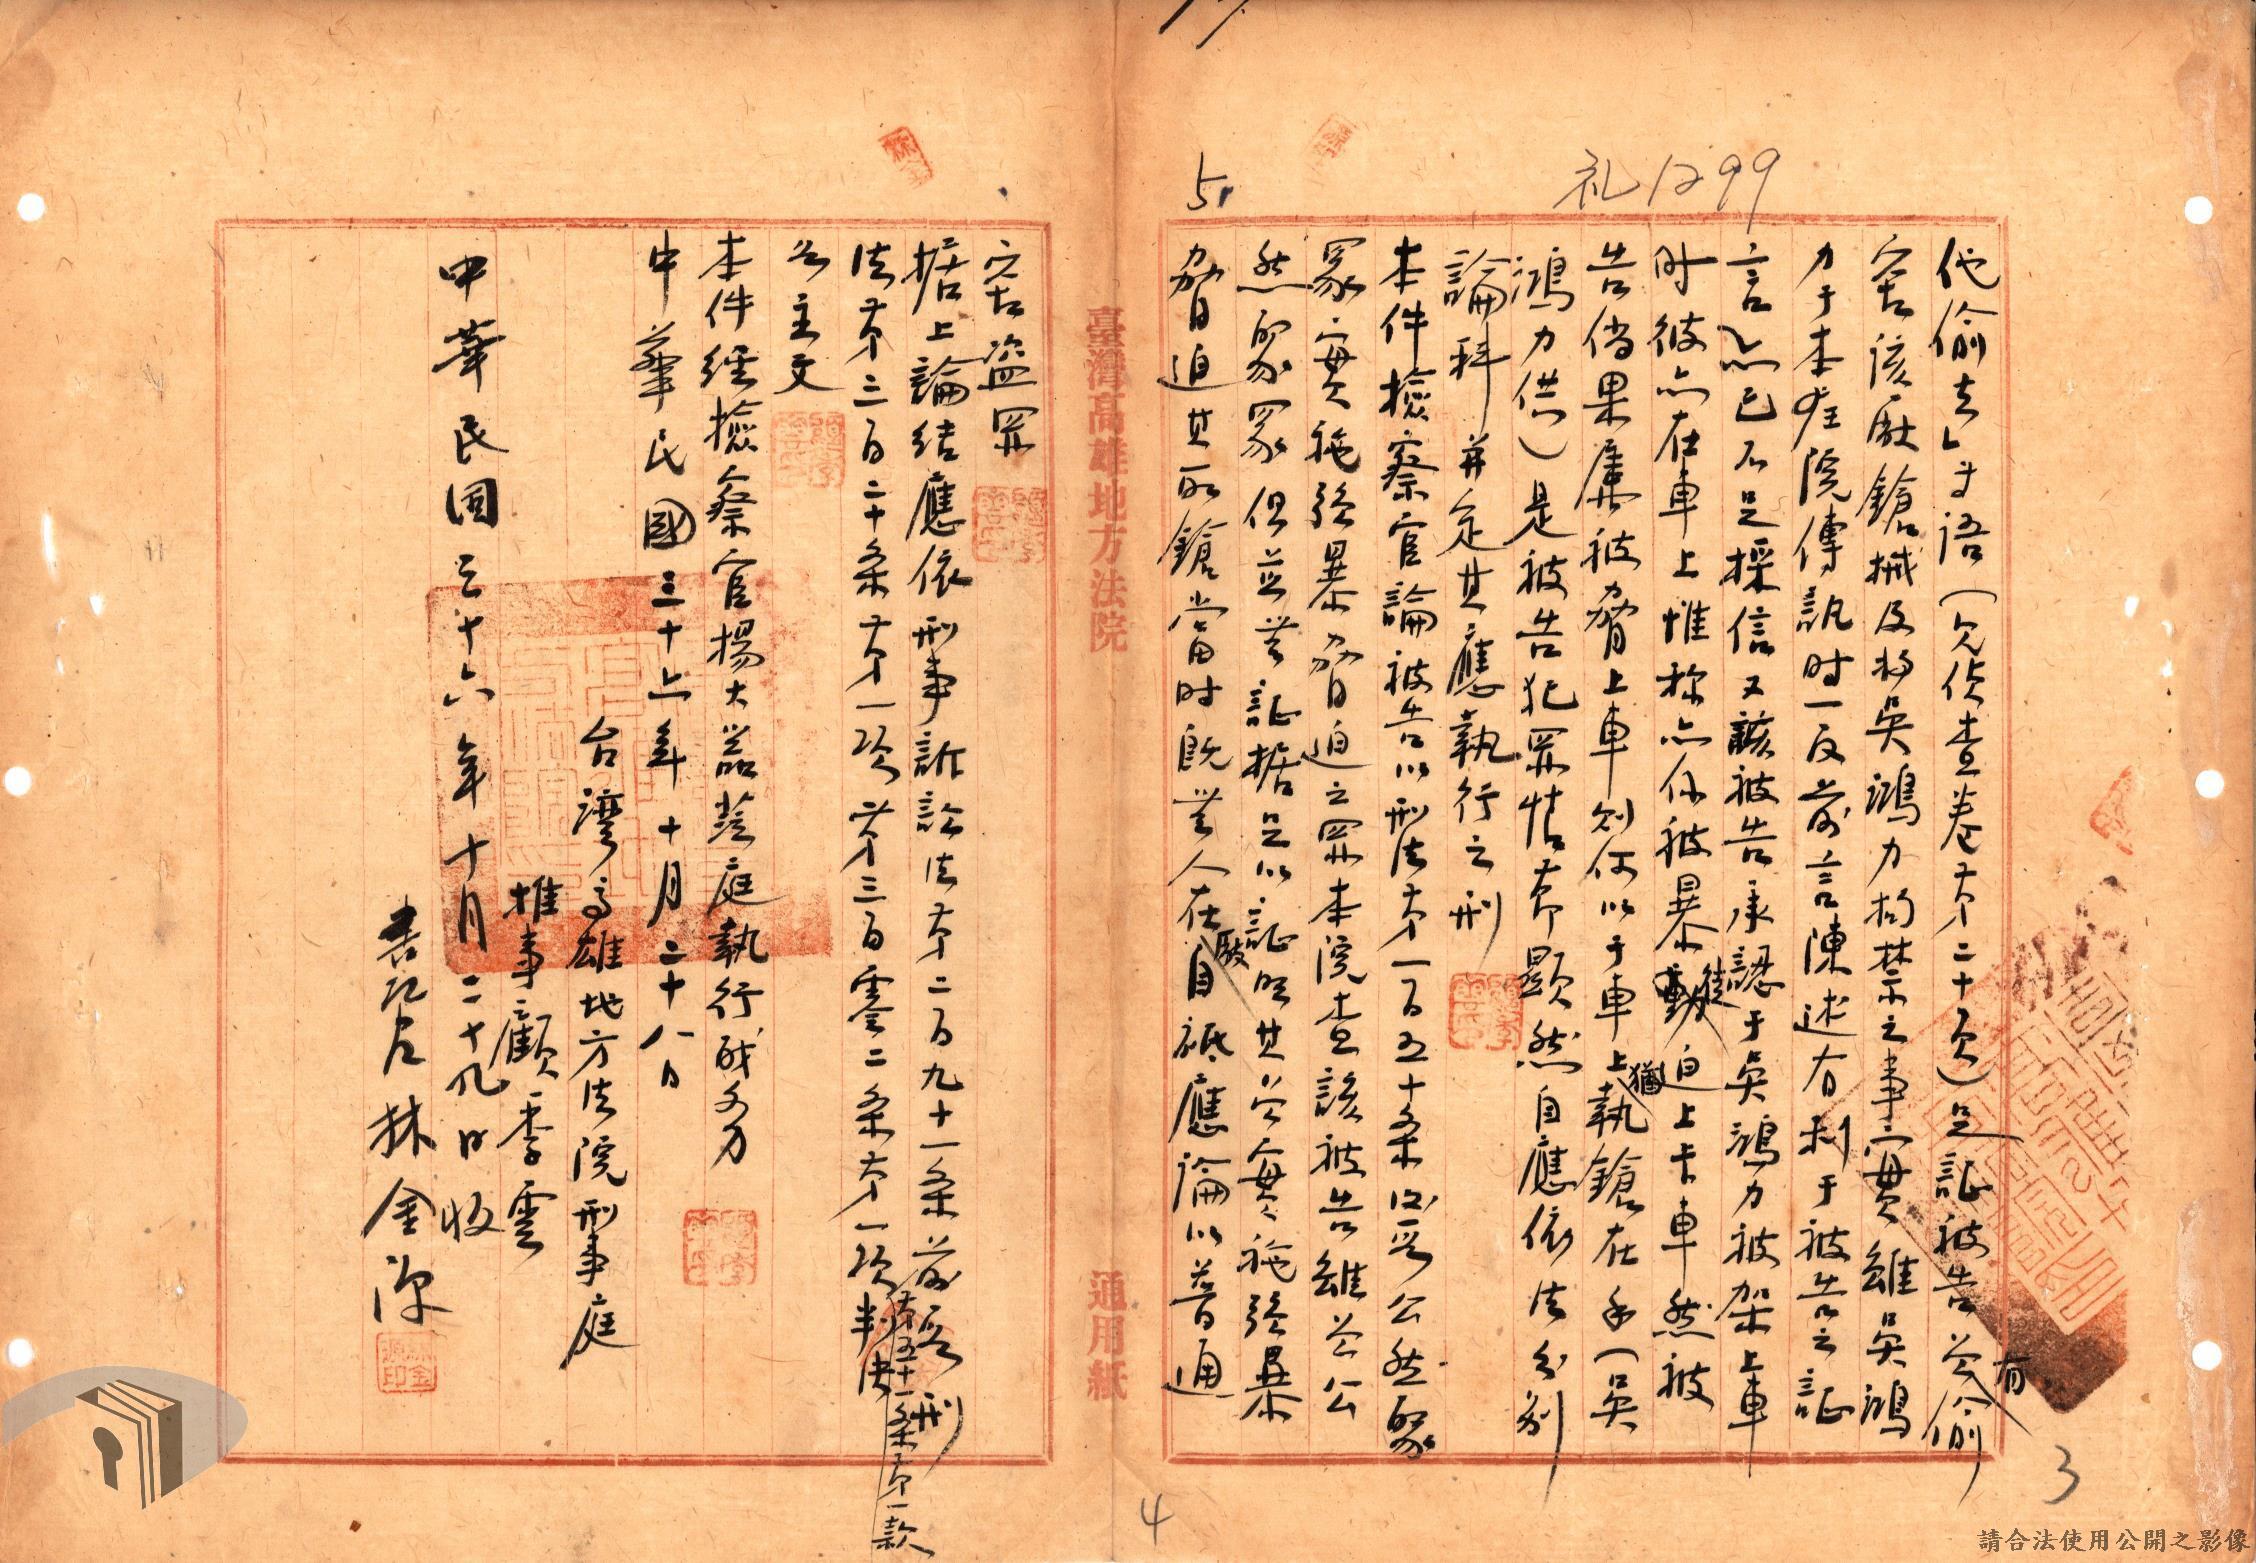 礼1299
5
他偷去」等語（見偵查卷第二十頁）足証被告並有偷
害該廠鎗械及將吳鴻力拘禁之事實雖吳鴻
力于本院傳訊时一反前言陳述有利于被告之証
言亦已不足採信又該被告承認于吳鴻力被架上車
时彼亦在車上惟称亦係被暴徒迫上卡車然被
告倘果屬被脅上車則何以于車上猶執鎗在手（吳
鴻力供）是被告犯罪情節顯然自應依法分別
論科并定其應執行之刑
本件檢察官論被告以刑法第一百五十条後段公然聚
眾實施強暴脅迫之罪本院查該被告雖並公
然聚眾但並無証据足以証明其並實施強暴
脅迫其取鎗當时既無人在廠自祗應論以普通
竊盜罪
据上論結應依刑事訴訟法第二百九十一条前段刑
法第三百二十条第一項第三百零二条第一項第五十一条第一款判決
如主文
本件經檢察官楊大器蒞庭執行職务
中華民國三十六年十月二十八日
台灣高雄地方法院刑事庭
推事顧季雲
中華民國三十六年十月二十九日收
書記官林金源
臺灣高雄地方法院
通用紙
3
4
請合法使用公開之影像